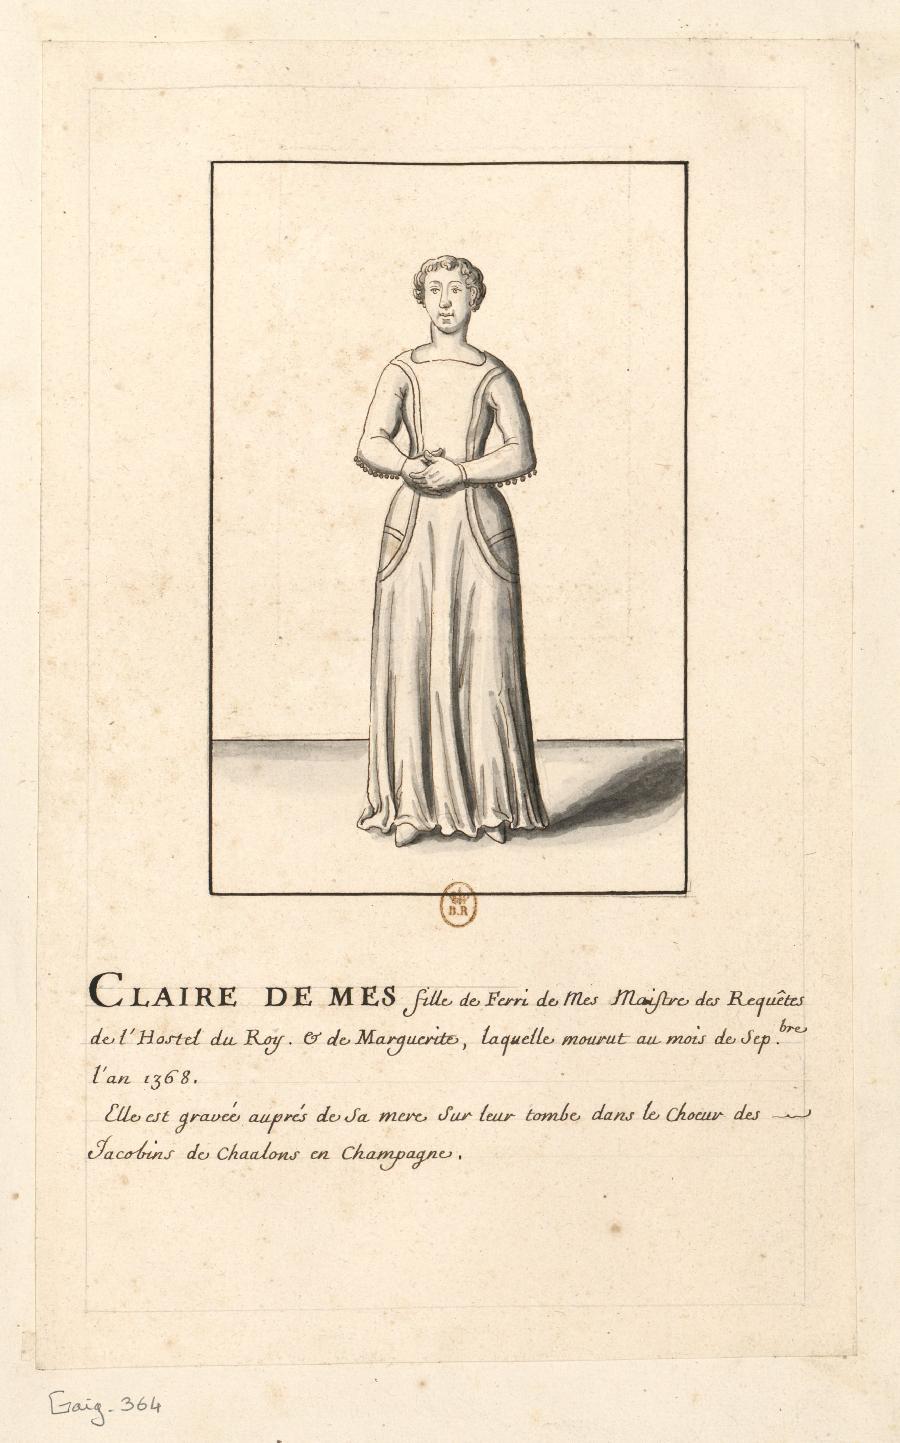 B.R
CLAIRE DE MES fille de Ferri de Mes Maistre des Requêtes
de l'Hostel du Roy. & de Marguerite, laquelle mourut au mois de Sep.bre
l'an 1368.
Elle est gravée auprés de Sa mere Sur leur tombe dans le Choeur des
Jacobins de Chaalons en Champagne.
Gaig. 364